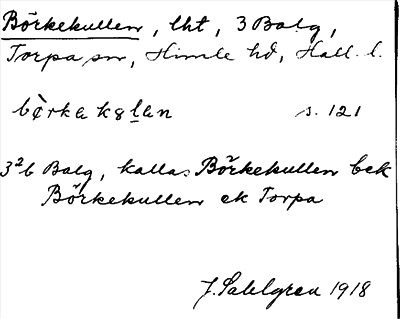 Börkekullen, lht, 3 Balg,
Torpa sn, Himle hd, Hall. l.
börkakɞlan s. 121
3²6 Balg, kallas Börkekullen bek
Börkekullen ek Torpa
J. Sahlgren 1918